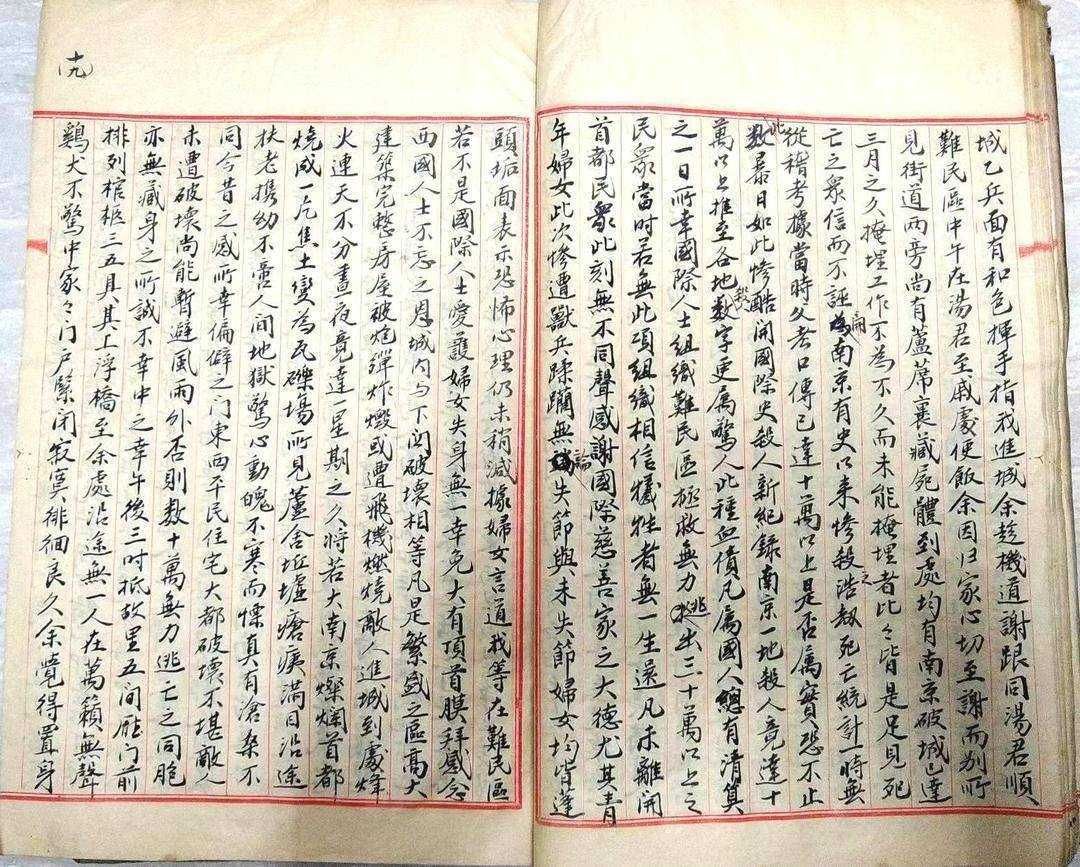 城乙兵面有和色揮手指我進城余趁機道謝跟同湯君順
難民區中午在湯君至戚處便飯余因归家心切至謝而别所
見街道両旁尚有蘆蓆裹藏屍體到處均有南京破城已達
三月之久掩埋工作不為不久而未能掩埋者比々皆是足見死
亡之眾信而不誣論南京有史以来惨殺浩劫死亡統計一時無
從稽考據當時父老口傳已達十萬以上是否属實恐不止
此数暴日如此惨酷開國際史殺人新紀録南京一地殺人竟達十
萬以上推至各地被殺数字更属驚人此種血債凡属國人總有清算
之一日所幸國際人士組織難民區拯救無力逃出三十萬以上之
民眾當时若無此項組織相信犧牲者無一生還凡未離開
首都民眾此刻無不同聲感謝國際慈善家之大德尤其青
年婦女此次惨遭獸兵蹂躙無論失節與未失節婦女均皆蓬
十九
頭垢面表示恐怖心理仍未稍減據婦女言道我等在難民區
若不是國際人士愛護婦女失身無一幸免大有頂首膜拜感念
西國人士不忘之恩城内与下関破壞相等凡是繁盛之區高大
建築完整房屋被炮彈炸燬或遭飛機燃燒敵人進城到處烽
火連天不分晝夜竟達一星期之久将若大南京燦爛首都
燒成一片焦土變為瓦礫場所見蘆舍坵墟瘡痍满目沿途
扶老携幼不啻人间地獄驚心動魄不寒而慄真有滄桑不
同今昔之感所幸偏僻之门東西平民住宅大都破壞不堪敵人
未遭破壞尚能暫避風雨外否則数十萬無力逃亡之同胞
亦無藏身之所誠不幸中之幸午後三时抵故里五间廳门前
排列棺柩三五具其上浮橋至余處沿途無一人在萬籟無聲
鷄犬不驚中家々门户緊闭寂寞徘徊良久余覺得置身